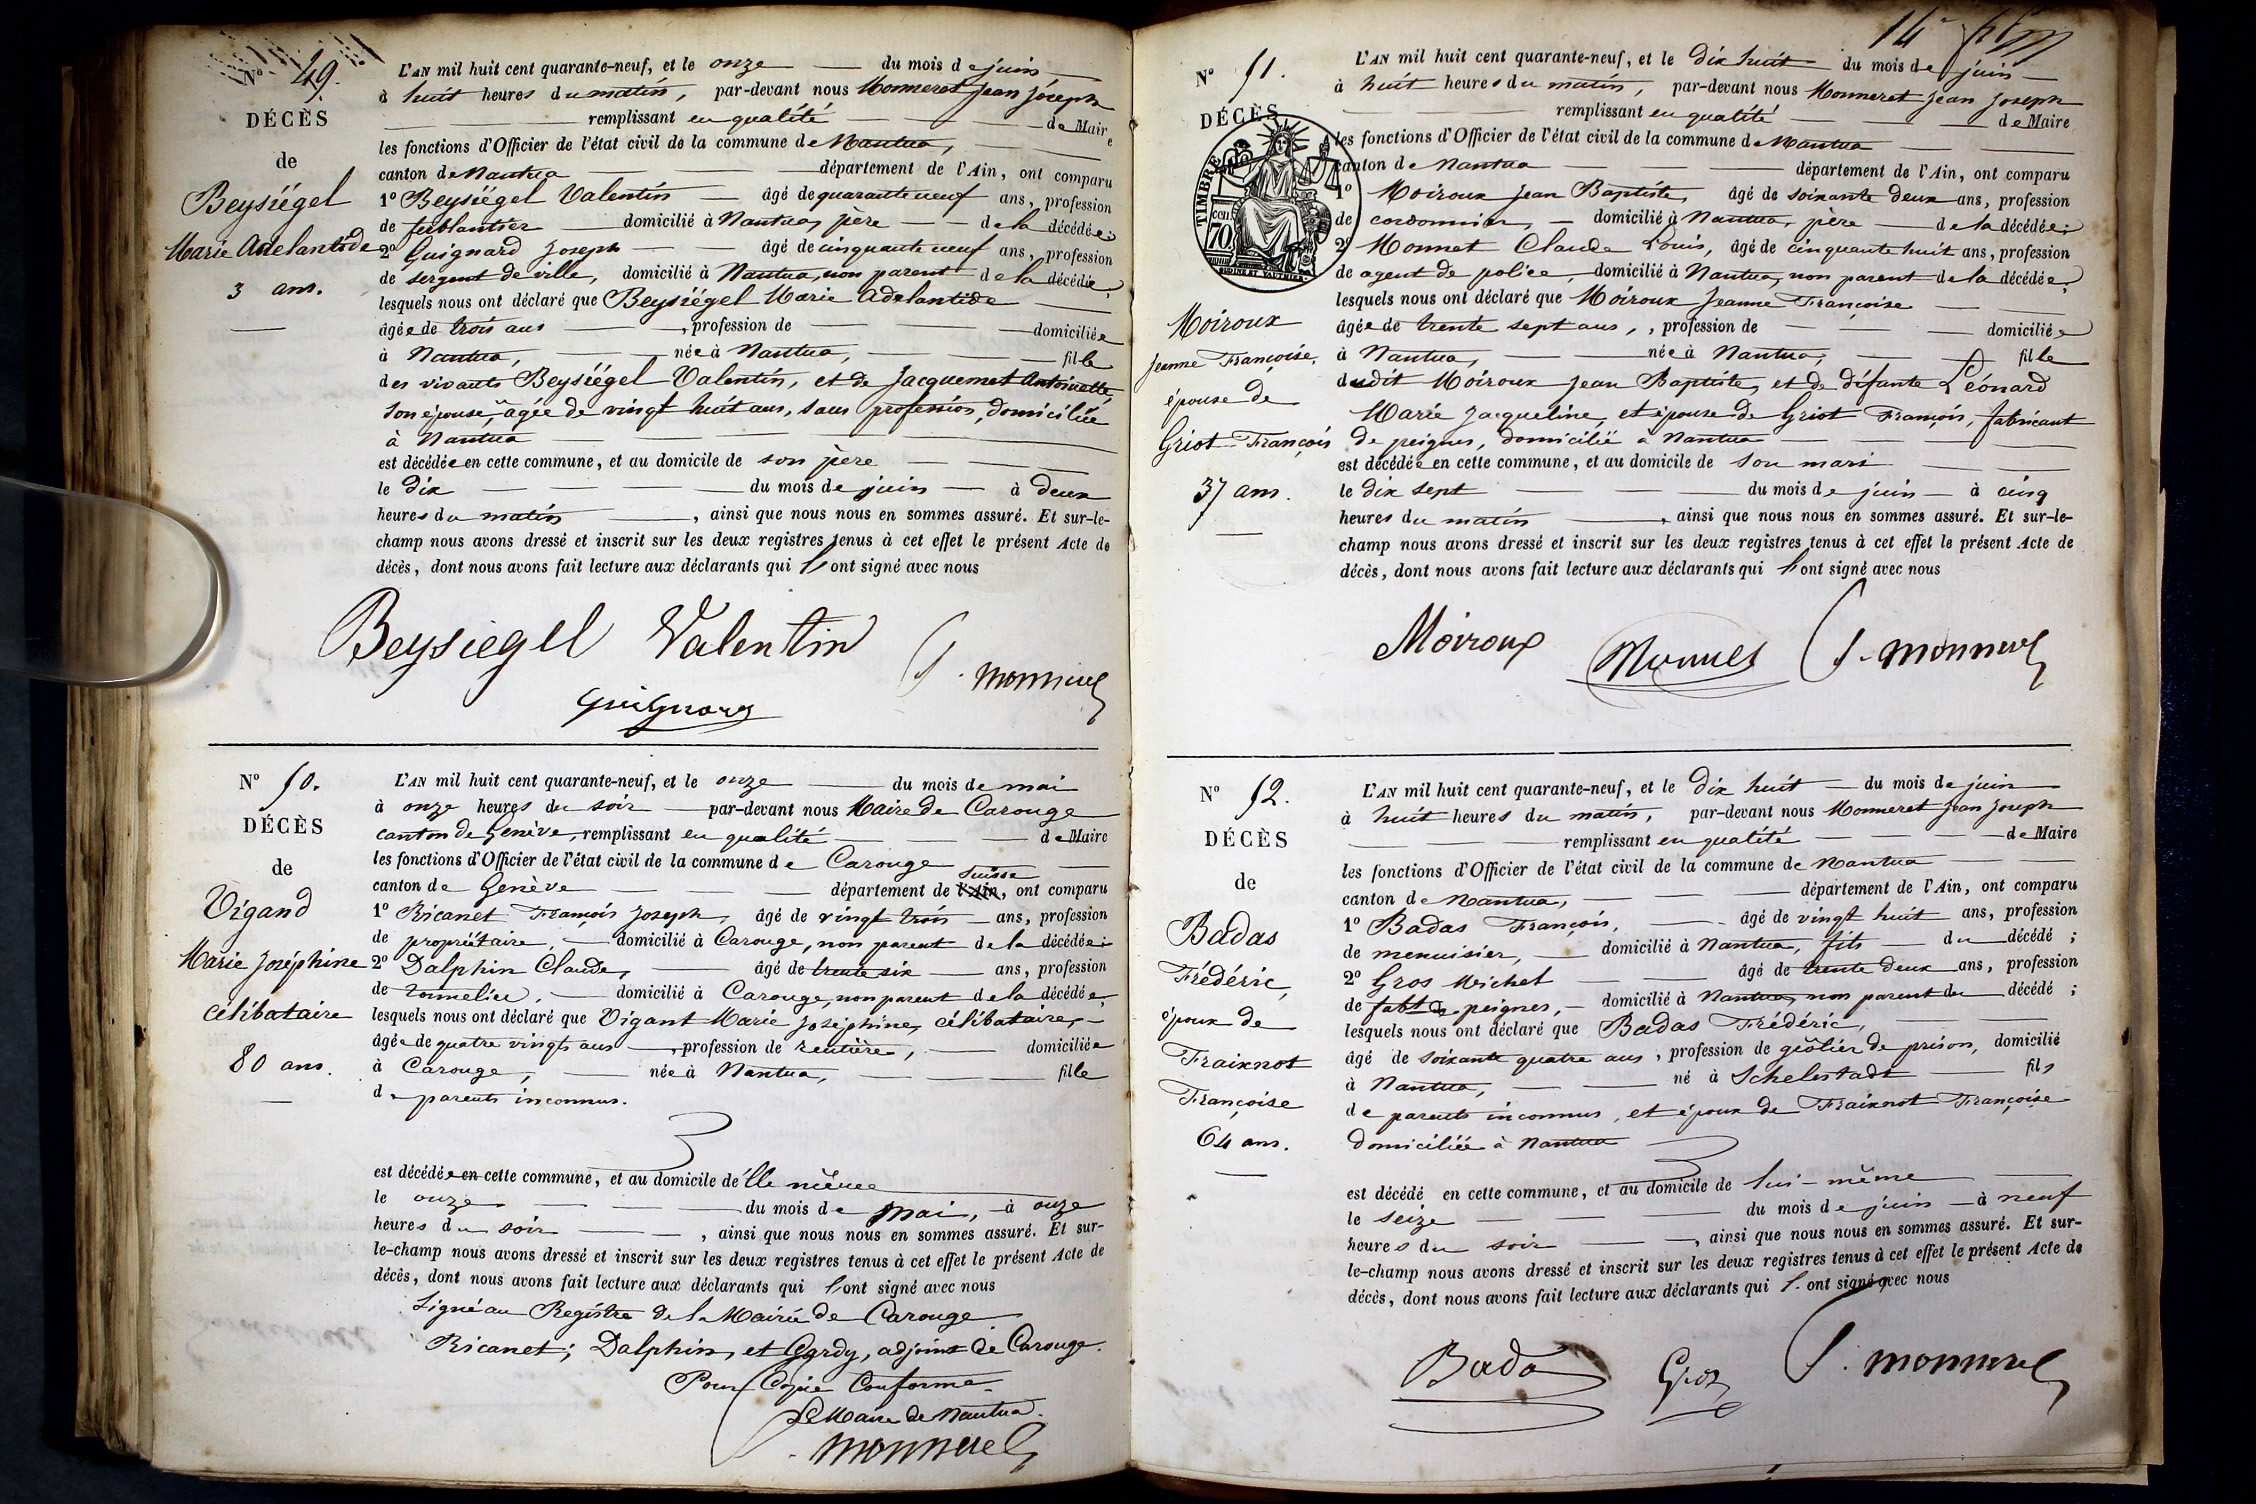 N° 49.
DÉCÈS
de
Beysiégel
Marie Adelantide
3 ans.
L'AN mil huit cent quarante-neuf, et le onze du mois de juin
à huit heures du matin, par-devant nous Monneret Jean Joseph
remplissant en qualité de Maire
les fonctions d'Officier de l'état civil de la commune de Nantua,
canton de Nantua département de l'Ain, ont comparu
1° Beysiégel Valentin âgé de quarante neuf ans, profession
de ferblantier domicilié à Nantua, père de la décédée;
2° Guignard Joseph âgé de cinquante neuf ans, profession
de sergent de ville, domicilié à Nantua, non parent de la décédée,
lesquels nous ont déclaré que Beysiégel Marie Adelantide
âgée de trois ans, profession de domiciliée
à Nantua, née à Nantua, fille
des vivants Beysiégel Valentin, et de Jacquemet Antoinette,
son épouse, agée de vingt huit ans, sans profession, domiciliée
à Nantua
est décédée en cette commune, et au domicile de son père
le dix du mois de juin à deux
heures du matin, ainsi que nous nous en sommes assuré. Et sur-le-
champ nous avons dressé et inscrit sur les deux registres tenus à cet effet le présent Acte de
décès, dont nous avons fait lecture aux déclarants qui l'ont signé avec nous
Beysiegel Valentin
J. Monneret
Guignard
N° 50.
DÉCÈS
de
Vigand
Marie Joséphine
célibataire
80 ans.
L'AN mil huit cent quarante-neuf, et le onze du mois de mai
à onze heures du soir par-devant nous Maire de Carouge
canton de Genève, remplissant en qualité de Maire
les fonctions d'Officier de l'état civil de la commune de Carouge
Suisse
canton de Genève département de l'Ain, ont comparu
1° Ricanet François Joseph, âgé de vingt trois ans, profession
de propriétaire, domicilié à Carouge, non parent de la décédée;
2° Dalphin Claude, âgé de trente six ans, profession
de domicilié à Carouge, non parent de la décédée,
lesquels nous ont déclaré que Vigant Marie Joséphine, célibataire,
âgée de quatre vingts ans, profession de rentière, domiciliée
à Carouge, née à Nantua, fille
de parents inconnus.
est décédée en cette commune, et au domicile d'elle même
le onze du mois de mai, à onze
heures du soir, ainsi que nous nous en sommes assuré. Et sur-
le-champ nous avons dressé et inscrit sur les deux registres tenus à cet effet le présent Acte de
décès, dont nous avons fait lecture aux déclarants qui l'ont signé avec nous
Signé au Registre de la Mairie de Carouge
Ricanet; Dalphin, et Gardy, adjoint de Carouge.
Pour Copie Conforme.
Le Maire de Nantua.
J. Monneret
14e
N° 51.
DÉCÈS
TIMBRE
cen
70.
Moiroux
Jeanne Françoise,
épouse de
Griot François
37 ans.
L'AN mil huit cent quarante-neuf, et le dix huit du mois de juin
à huit heures du matin, par-devant nous Monneret Jean Joseph
remplissant en qualité de Maire
les fonctions d'Officier de l'état civil de la commune de Nantua
canton de Nantua département de l'Ain, ont comparu
1° Moiroux Jean Baptiste, âgé de soixante deux ans, profession
de cordonnier, domicilié à Nantua, père de la décédée;
2° Monnet Claude Louis, âgé de cinquante huit ans, profession
de agent de police, domicilié à Nantua, non parent de la décédée,
lesquels nous ont déclaré que Moiroux Jeanne Françoise
âgée de trente sept ans, , profession de domiciliée
à Nantua, née à Nantua, fille
dudit Moiroux Jean Baptiste, et de défunte Léonard
Marie Jacqueline, et épouse de Griot François, fabricant
de peignes, domicilié à Nantua
est décédée en cette commune, et au domicile de son mari
le dix sept du mois de juin à cinq
heures du matin, ainsi que nous nous en sommes assuré. Et sur-le-
champ nous avons dressé et inscrit sur les deux registres tenus à cet effet le présent Acte de
décès, dont nous avons fait lecture aux déclarants qui l'ont signé avec nous
Moiroux Monnet J. Monneret
N° 52.
DÉCÈS
de
Badas
Frédéric,
époux de
Fraixnot
Françoise
64 ans.
L'AN mil huit cent quarante-neuf, et le dix huit du mois de juin
à huit heures du matin, par-devant nous Monneret Jean Joseph
remplissant en qualité de Maire
les fonctions d'Officier de l'état civil de la commune de Nantua
canton de Nantua, département de l'Ain, ont comparu
1° Badas François, âgé de vingt huit ans, profession
de menuisier, domicilié à Nantua, fils du décédé;
2° Gros Michel âgé de trente deux ans, profession
de fabt de peignes, domicilié à Nantua, non parent du décédé;
lesquels nous ont déclaré que Badas Frédéric,
âgé de soixante quatre ans, profession de geôlier de prison, domicilié
à Nantua, né à Schelestadt fils
de parents inconnus, et époux de Fraixnot Françoise
domiciliée à Nantua
est décédé en cette commune, et au domicile de lui-même
le seize du mois de juin à neuf
heures du soir, ainsi que nous nous en sommes assuré. Et sur-
le-champ nous avons dressé et inscrit sur les deux registres tenus à cet effet le présent Acte de
décès, dont nous avons fait lecture aux déclarants qui l'ont signé avec nous
Bada Gros J. Monneret